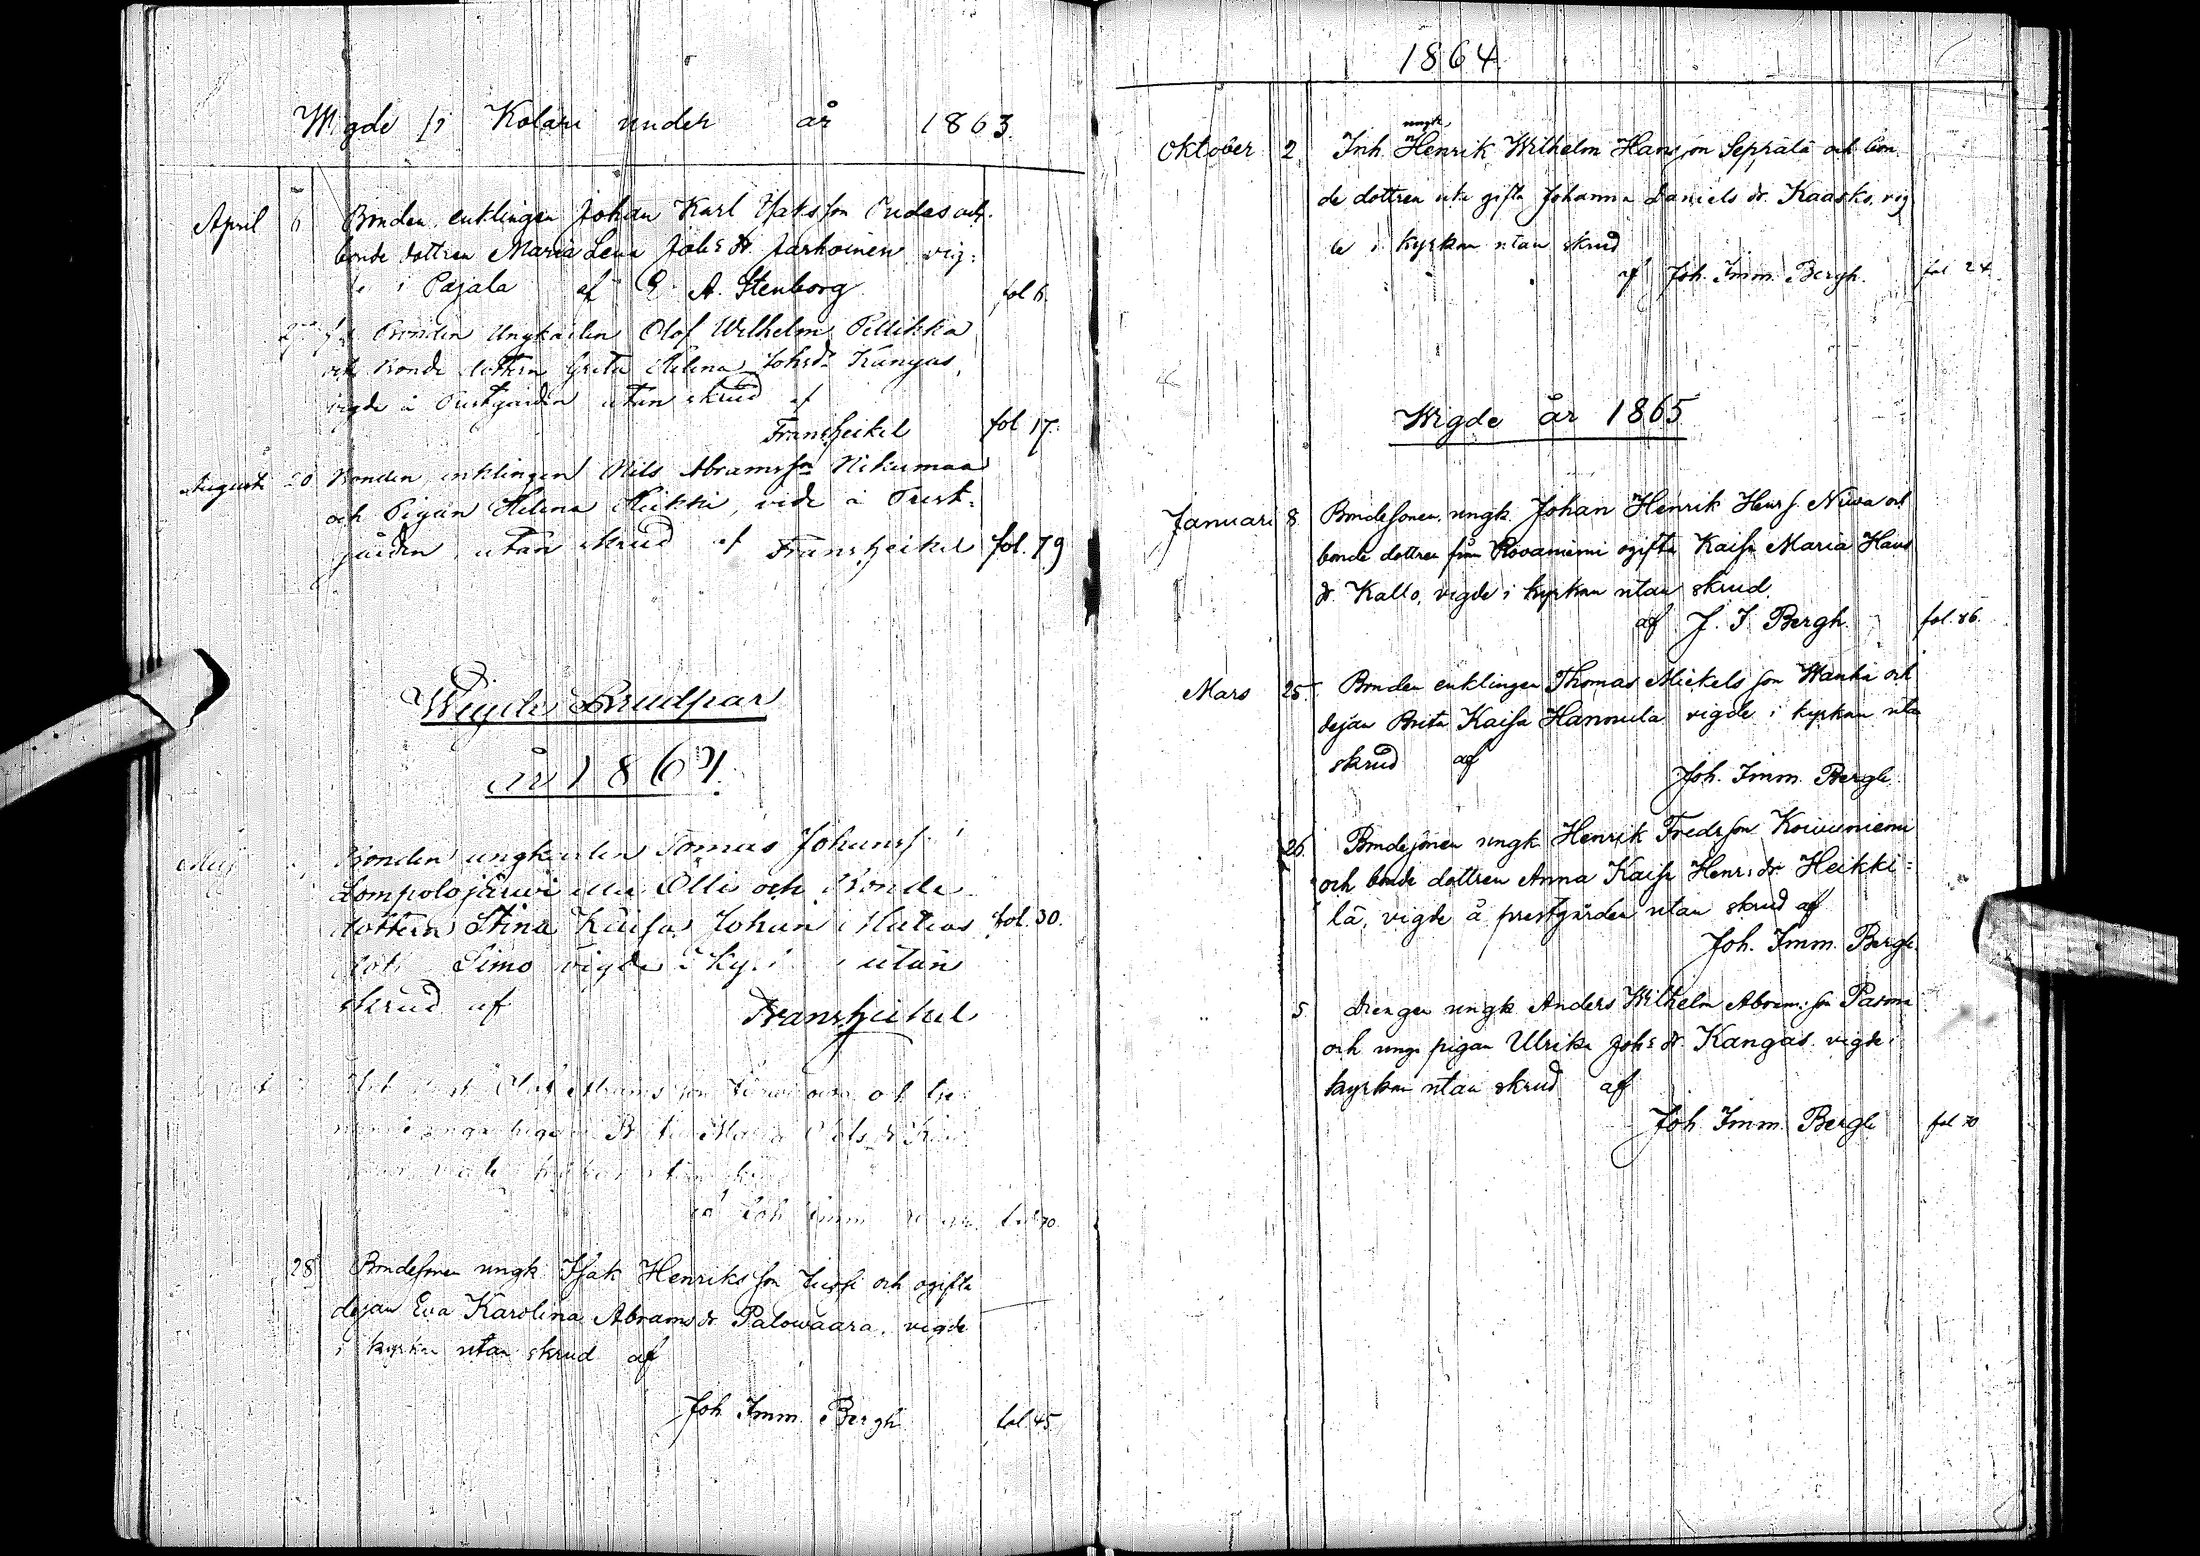 Wigde fr Kolari under år 1863.
April 6 Bonden enklingen Johan Karl Isaksson Oudas och
bonde dottren Maria Lena Johs dr Jarhoinen vig:
de i Pajala af E. A. Stenborg fol 6.
Bonden Ungkarlen Olof Wilhelm Pellikka
och Bonde dottern Greta Helena Johsdr Kangas,
vigde å Prestgården utan skrud af
Frans Heikel fol 17.
Augusti 20 Bonden enklingen Nils Abramsson Nikumaa
och Pigan Helena Heikki, vide å Prest:
gården, utan skrud af Frans Heikel fol. 79
Wigde Brudpar
år 1864.
Bonden ungkarlen Tomas Johans
Lompolojärwi eller Olli och Bonde
dottern Stina Kaisa Johan Matias fol. 30.
dotr Simo vigde i utan
skrud af Frans Heikel
Olof Abrams son
unga pigan Brita Maria
af Joh Imm fol 70.
28 Bondesonen ungk Isak Henriksson och ogifta
dejan Eva Karolina Abrams dr Palowaara, vigde
i kyrkan utan skrud af
Joh Imm. Bergh fol. 45
1864.
ungk.
Oktober 2 Inh. Henrik Wilhelm Hansson Seprälä och bon
de dottren icke gifta Johanna Daniels dr. Kaasko, vig
de i kyrkan utan skrud
af Joh. Imm. Bergh. fol 24.
Wigde år 1865
Januari 8 Bondesonen, ungk. Johan Henrik Henrs. Niwa och
bonde dottren från Rovaniemi ogifta Kaisa Maria Hans
dr. Kallo, vigde i kyrkan utan skrud.
af J. I. Bergh. fol. 86.
Mars 25. Bonden enklingen Thomas Mickels son Wanha och
dejan Brita Kaisa Hannula vigde i kyrkan utan
skrud af
Joh. Imm. Bergh.
26. Bondesonen ungk Henrik Fredsson Koivuniemi
och bonde dottren Anna Kaisa Henrs dr Heikki:
lä, vigde å prestgården utan skrud af
Joh. Imm. Bergh
5 Drengen ungk Anders Wilhelm Abram: son Parma
och unga pigan Ulrika Johs dr. Kangas vigde i
kyrkan utan skrud af
Joh. Imm. Bergh fol 70